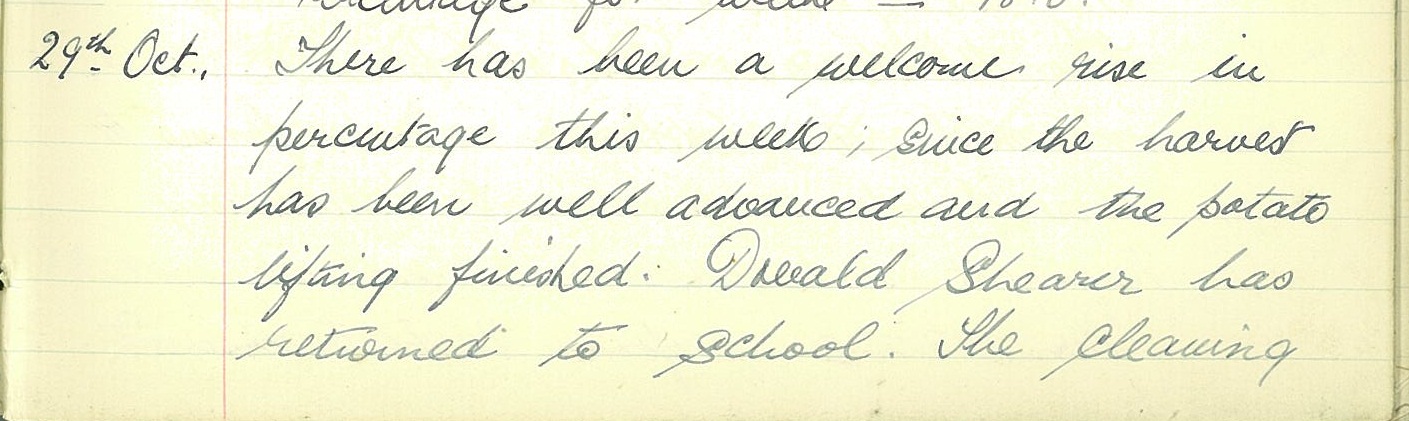 percentage for week —
29th Oct., There has been a welcome rise in
percentage this week; since the harvest
has been well advanced and the potato
lifting finished. Donald Shearer has
returned to school. The cleaning